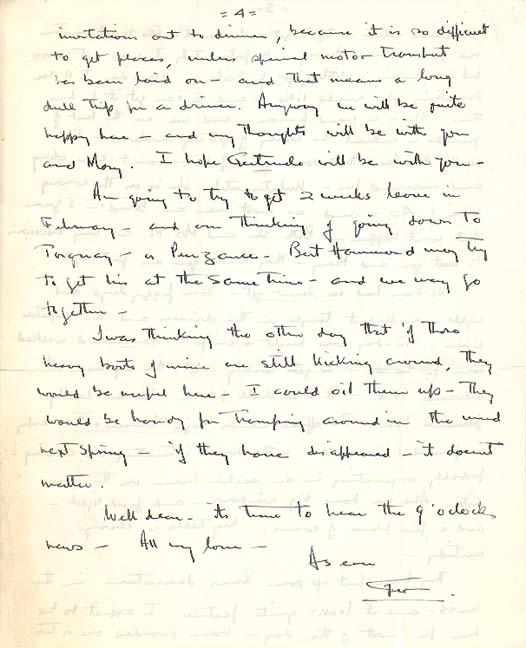 = 4 =
invitations out to dinner, because it is so difficult
to get places, unless special motor transport
has been laid on - and that means a long
dull trip for a dinner. Anyway we will be quite
happy here - and my thoughts will be with you
and Mary. I hope Gertrude will be with you -
Am going to try to get 2 weeks leave in
February - and am thinking of going down to
Torquay - or Penzance - Bert Hammond may try
to get his at the same time - and we may go
together -
I was thinking the other day that if those
heavy boots of mine are still kicking around, they
would be useful here - I could oil them up - they
would be handy for tramping around in the mud
next spring - if they have disappeared - it doesnt
matter.
Well dear - its time to hear the 9 o'clocks
news - All my love -
As ever